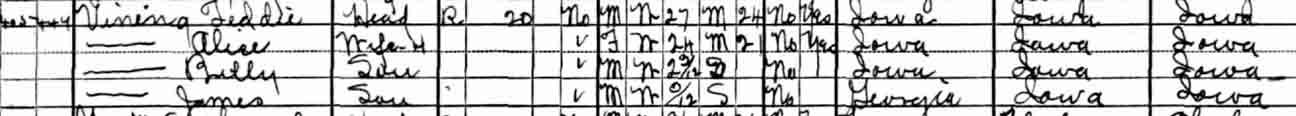 Vining Teddie Head R 20 No M W 27 M 24 No Yes Iowa Iowa Iowa
—— Alice Wife-H ✓ F W 24 M 21 No Yes Iowa Iowa Iowa
—— Billy Son ✓ M W 2 9/12 S No Iowa Iowa Iowa
—— James Son ✓ M W 0/12 S No Georgia Iowa Iowa